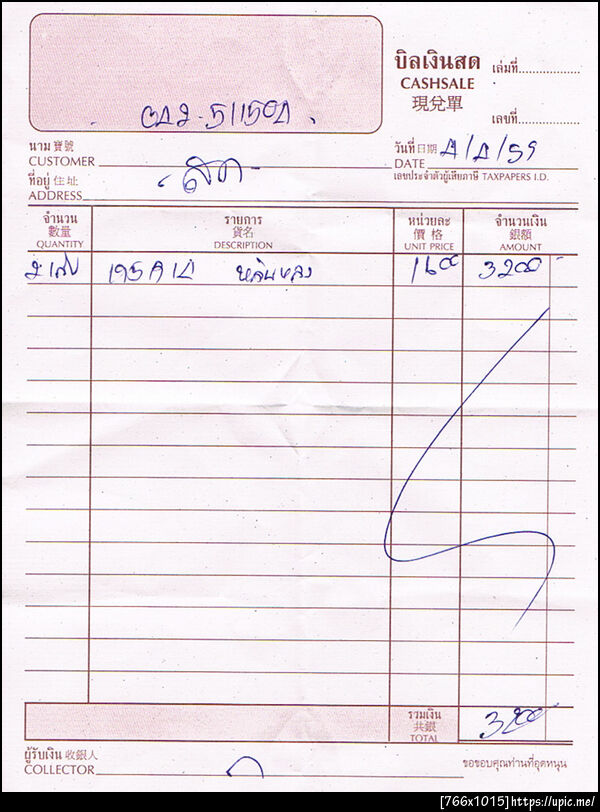 บิลเงินสด เล่มที่
CASHSALE
現兌單
เลขที่
นาม 寶號
CUSTOMER
วันที่ 日期
DATE 4/4/59
ที่อยู่ 住址
ADDRESS สด
เลขประจำตัวผู้เสียภาษี TAXPAPERS I.D.
จำนวน รายการ หน่วยละ จำนวนเงิน
數量 貨名 價格 銀額
QUANTITY DESCRIPTION UNIT PRICE AMOUNT
2 เส้น 195 R 14 1600 3200
รวมเงิน
共銀
TOTAL 3200
ผู้รับเงิน 收銀人
COLLECTOR
ขอขอบคุณท่านที่อุดหนุน
[766x1015]https://upic.me/